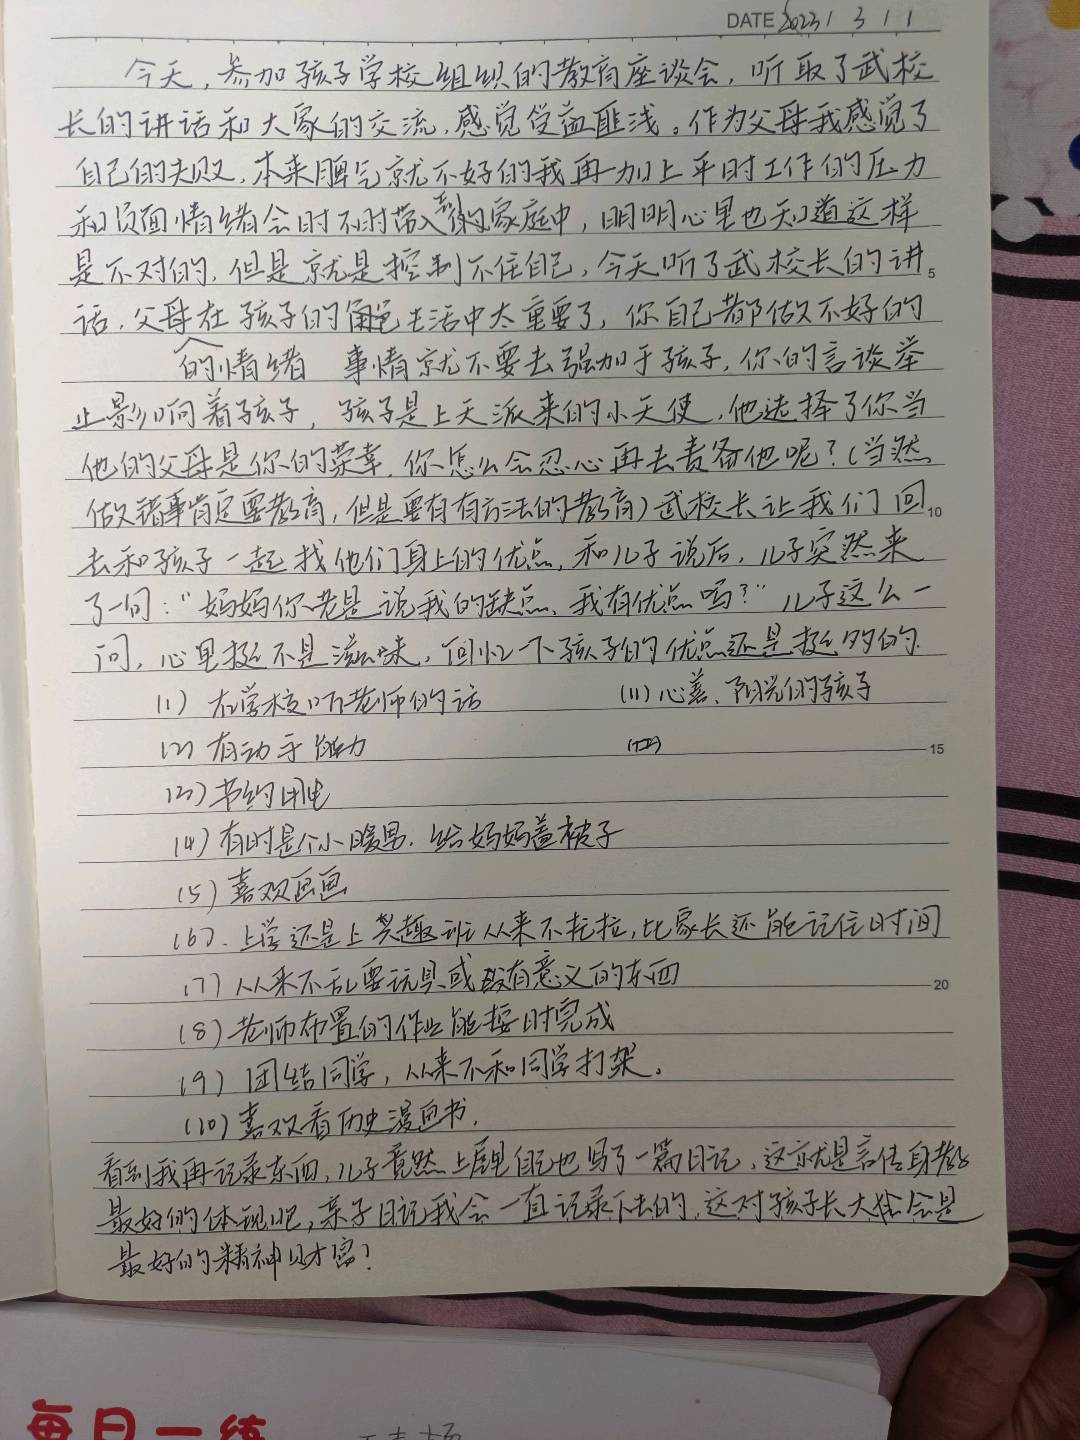 DATE 2023 / 3 / 1
今天，参加孩子学校组织的教育座谈会，听取了武校
长的讲话和大家的交流，感觉受益匪浅。作为父母我感觉了
自己的失败，本来脾气就不好的我再加上平时工作的压力
和负面情绪会时不时带入到家庭中，明明心里也知道这样
是不对的，但是就是控制不住自己，今天听了武校长的讲
5
话，父母在孩子的角色生活中太重要了，你自己都做不好的
的情绪 事情就不要去强加于孩子，你的言谈举
止影响着孩子，孩子是上天派来的小天使，他选择了你当
他的父母是你的荣幸，你怎么会忍心再去责备他呢？（当然
做错事肯定要教育，但是要有有方法的教育）武校长让我们回
10
去和孩子一起找他们身上的优点，和儿子说后，儿子突然来
了一句：“妈妈你老是说我的缺点，我有优点吗？”儿子这么一
问，心里挺不是滋味，回忆一下孩子的优点还是挺多的.
(1) 在学校听老师的话 (11) 心善、阳光的孩子
(2) 有动手能力 (12)
15
(3) 节约用电
(4) 有时是个小暖男，给妈妈盖被子
(5) 喜欢画画
(6). 上学还是上兴趣班从来不拖拉，比家长还能记住时间
(7) 从来不乱要玩具或没有意义的东西
20
(8) 老师布置的作业能按时完成
(9) 团结同学，从来不和同学打架。
(10) 喜欢看历史漫画书.
看到我再记录东西，儿子竟然上屋里自己也写了一篇日记，这亦就是言传身教
最好的体现吧，亲子日记我会一直记录下去的，这对孩子长大后会是
最好的精神财富！
每日一练